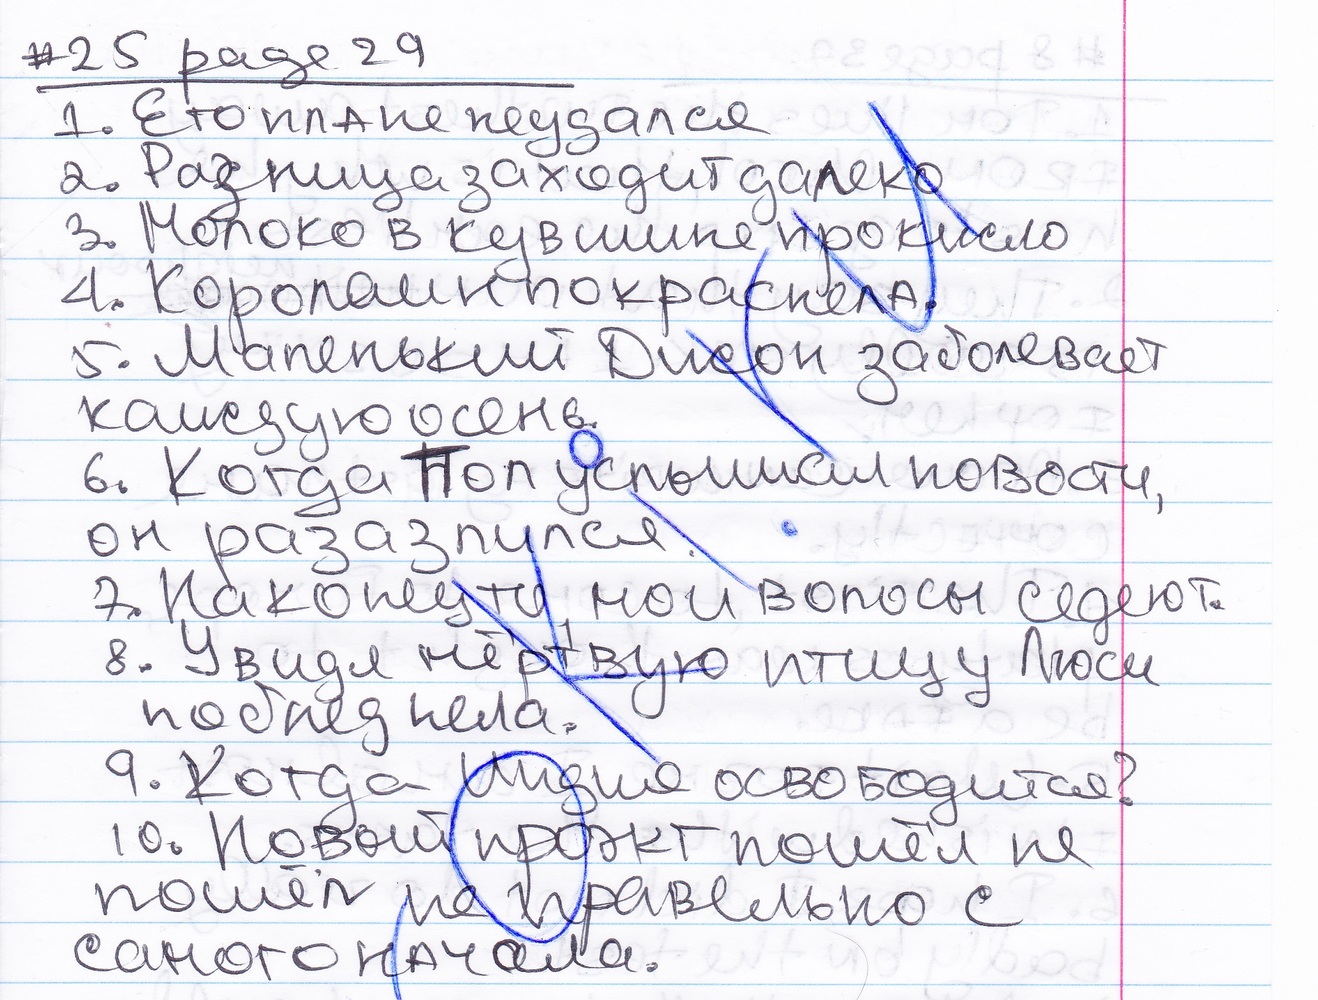 #25 page 29
1. Ето плане неудался
2. Разница заходит далеко
3. Молоко в кувшине прокисло
4. Королаин покраснела.
5. Маленький Джон заболевает
каждую осень.
6. Когда Пол услышал новости,
он разазлился.
7. мои волосы седеют.
8. Увидя мёртвую птицу Люси
побледнела.
9. Когда Индия освободится?
10. Новый проэкт пошёл не
пошёл не правельно с
самого начала.